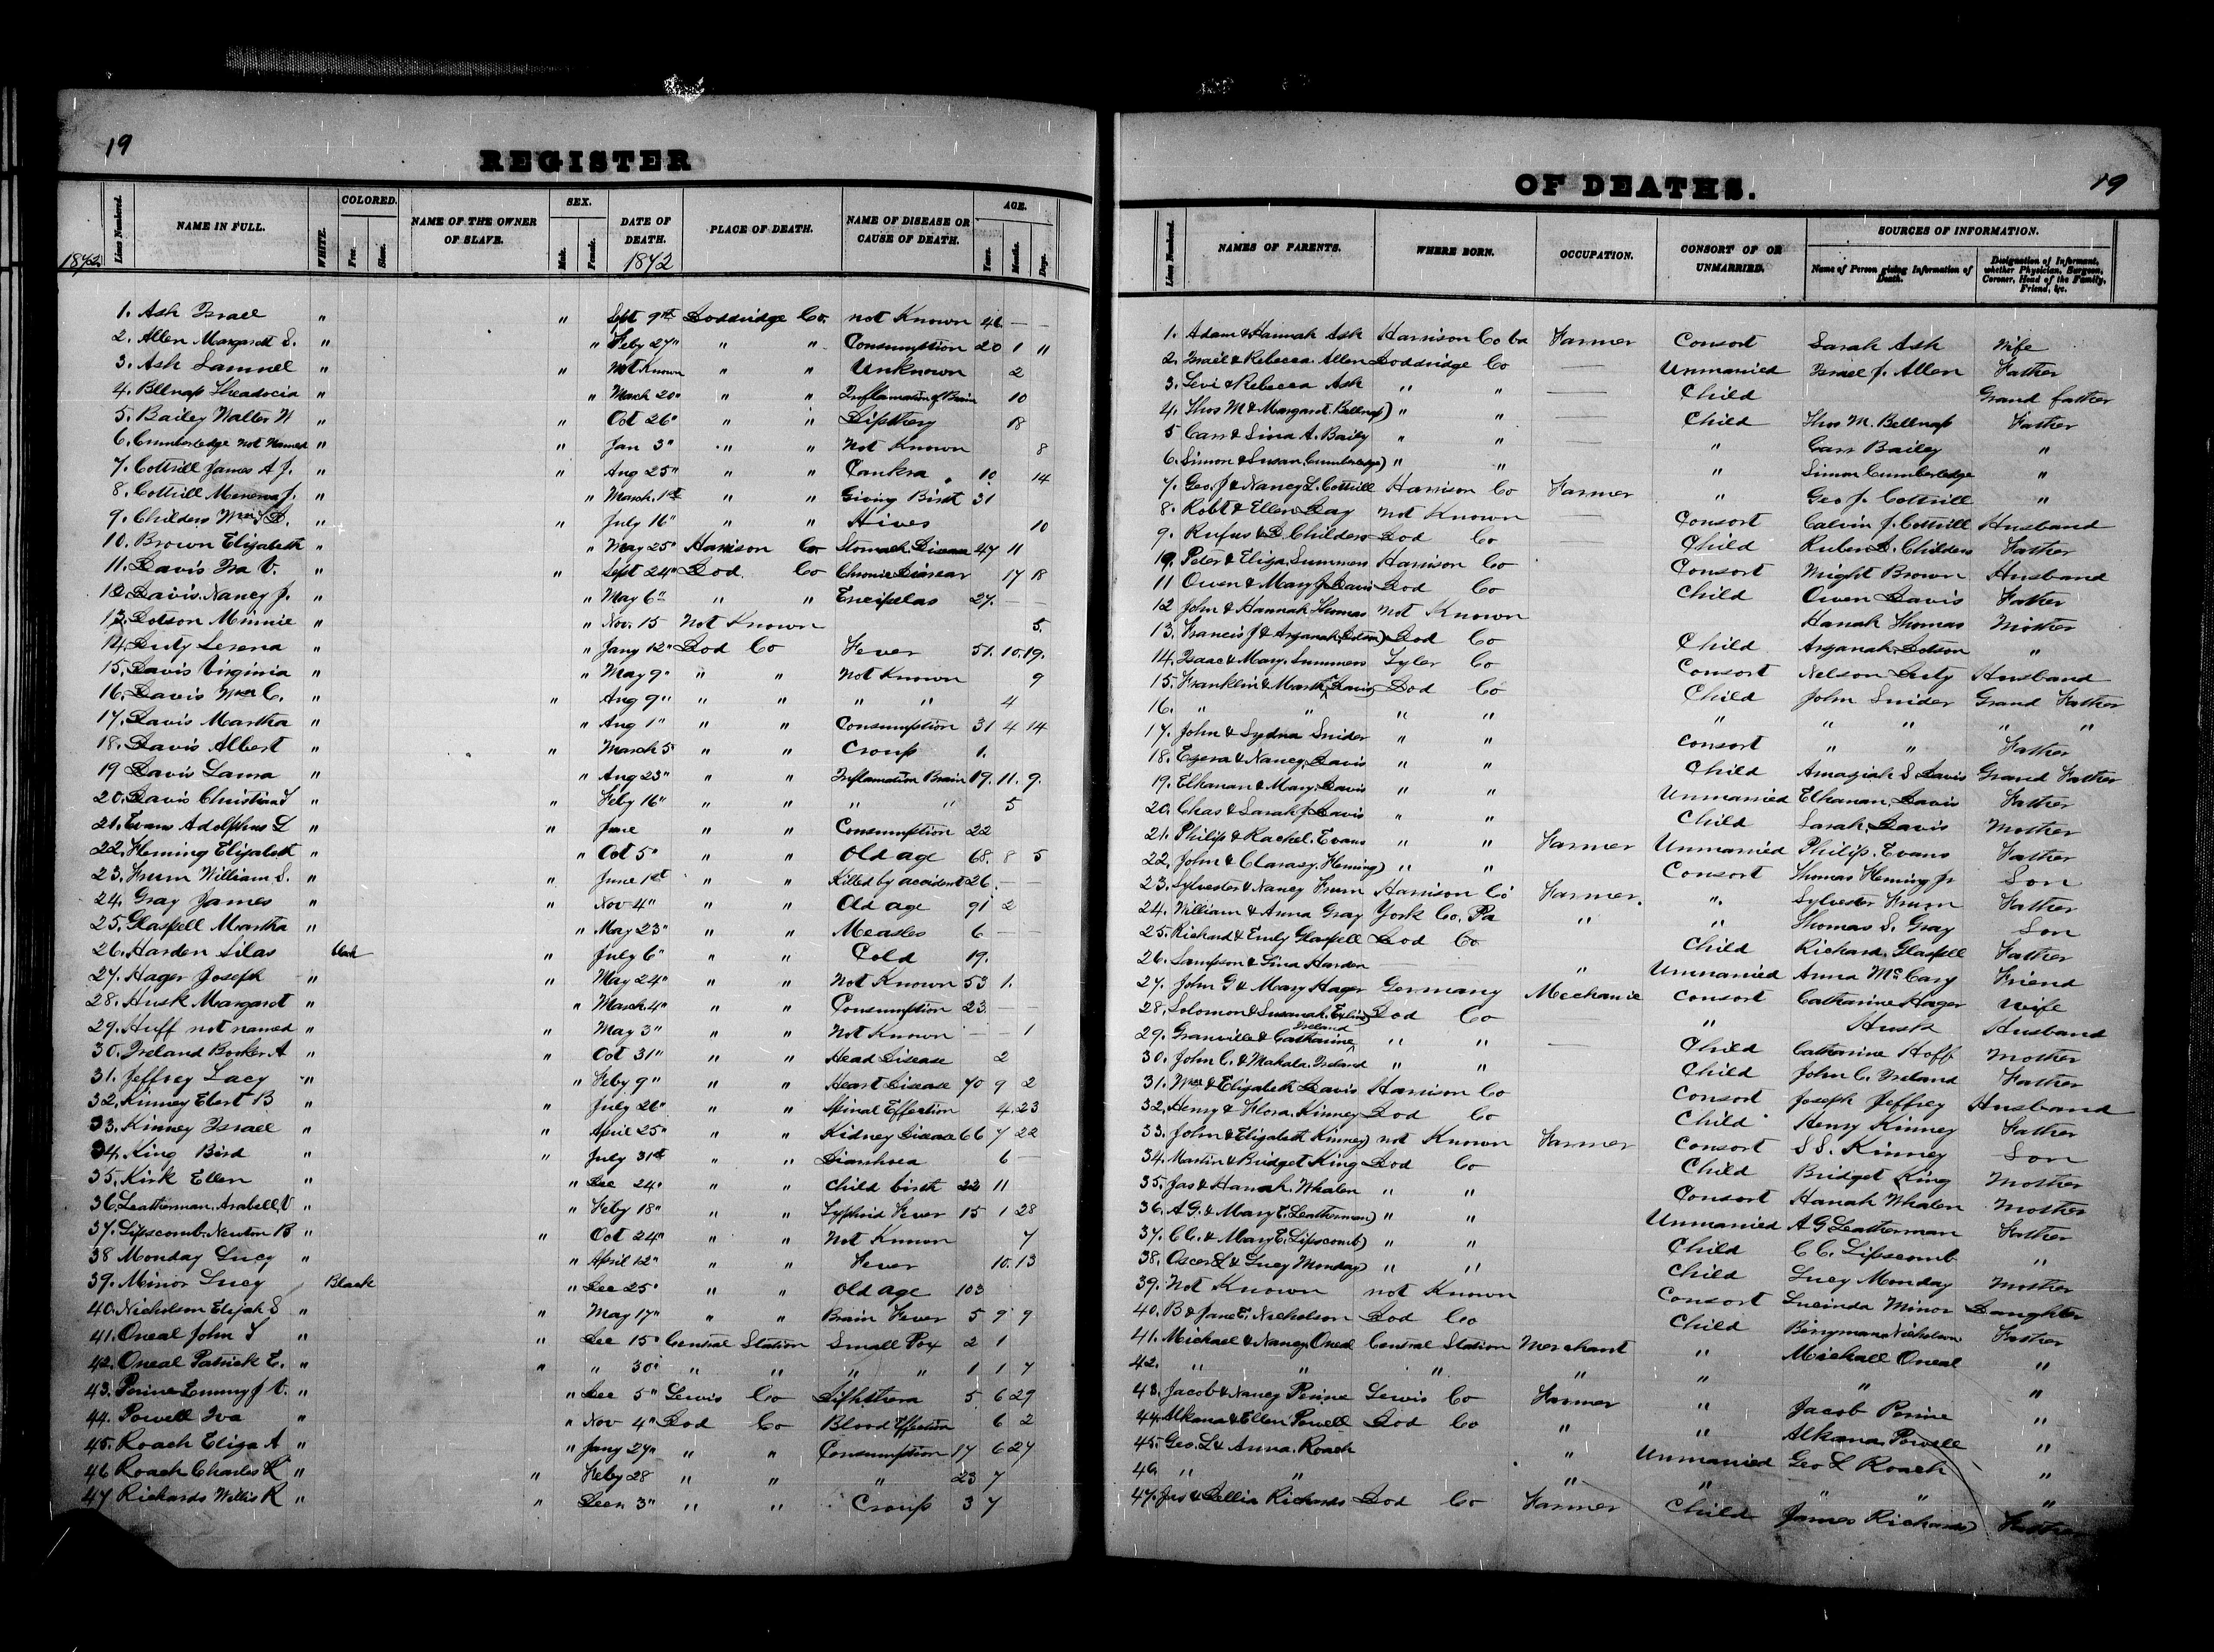 19
REGISTER
1872
Lines Numbered. NAME IN FULL. WHITE. COLORED. Free. Slave. NAME OF THE OWNER OF SLAVE. SEX. Male. Female. DATE OF DEATH. 1872 PLACE OF DEATH. NAME OF DISEASE OR CAUSE OF DEATH. AGE. Years. Months. Days.
1. Ash Israel " " Sept 9th Doddridge Co. not Known 46 — —
2. Allen Margarett S. " " Feby 27" " " Consumption 20 1 "
3. Ash Samuel " " Not Known " " Unknown 2
4. Bellnap " " March 20" " " Inflamation of Brain 10
5. Bailey Walter W " " Oct 26" " " Dipthery 18
6. Cumberledge Not Named " " Jan 3" " " Not Known 8
7. Cottrill James A J. " " Aug 25" " " Cankra 10 14
8. Cottrill Menerva J. " " March 1st " " Giving Birst 31
9. Childers Wm S D. " " July 16" " " Hives 10
10. Brown Elizabeth " " May 25" Harrison Co Stomach Disease 47 11
11. Davis Ira V. " " Sept 24" Dod. Co Chronic 17 18
12. Davis Nancy J. " " May 6" " " Ereipelas 27. — —
13. Dotson Minnie " " Nov. 15 Not Known 5.
14. Duty Serena " " Jany 12" Dod Co Fever 51. 10. 19.
15. Davis Virginia " " May 9" " " Not Known 9
16. Davis Wm C. " " Aug 9" " " " " 4
17. Davis Martha " " Aug 1" " " Consumption 31 4 14
18. Davis Albert " " March 5 " " Croup 1.
19 Davis Lama " " Aug 23" " " Inflamation Brain 19. 11. 9.
20. Davis " " Feby 16" " " " " 5
21. Evans Adolphus L " " June " " Consumption 22
22. Fleming Elizabeth " " Oct 5" " " Old age 68. 8 5
23. Frum William S. " " June 1st " " Killed by accident 26. — —
24. Gray James " " Nov 4" " " Old age 91 2
25. Glaspell Martha " " May 23" " " Measles 6 —
26. Harden Silas black " July 6" " " Cold 19.
27. Hager Joseph " " May 24" " " Not Known 53 1.
28. Husk Margaret " " March 4" " " Consumption 23. — —
29. Huff not named " " May 3" " " Not Known — — 1
30. Ireland Borker A " " Oct 31" " " Head Disease 2
31. Jeffrey Lacy " " Feby 9" " " Heart Disease 70 9 2
32. Kinney Ebert B " " July 26" " " Spinal Effection 4. 23
33. Kinney Israel " " April 25" " " Kidney Disease 66 7 22
34. King Bird " " July 31st " " Diarrhoea 6 -
35. Kirk Ellen " " Dec 24" " " Child birth 22 11
36. Leatherman Arabell V " " Feby 18" " " Typhoid Fever 15 1 28
37. Lipscomb Newton B " " Oct 24" " " Not Known 7
38 Monday Lucy " " April 12" " " Fever 10. 13
39. Minor Lucy Black " Dec 25" " " Old age 103
40. Nicholson Elijah S " " May 17" " " Brain Fever 5 9 9
41. Oneal John T " " Dec 15" Central Station Small Pox 2 1
42. Oneal Patrick E. " " " 30" " " " " 1 1 7
43. Perine J V. " " Dec 5" Lewis Co Diphthera 5 6 29
44. Powell Iva " " Nov 4" Dod Co Blood Effection 6 2
45. Roach Eliza A " " Jany 27" " " Consumption 17 6 27
46 Roach Charles R " " Feby 28 " " " 23 7
47 Richards Willis R " " Decr. 3" " " Croup 3 7
OF DEATHS.
19
Lines Numbered. NAMES OF PARENTS. WHERE BORN. OCCUPATION. CONSORT OF OR UNMARRIED. SOURCES OF INFORMATION. Name of Person giving Information of Death. Designation of Informant, whether Physician, Surgeon, Coroner, Head of the Family, Friend, &c.
1. Adam & Hannah Ash Harrison Co Farmer Consort Sarah Ash Wife
2. Israel & Rebecca Allen Doddridge Co — Unmarried Israel J. Allen Father
3. Levi & Rebecca Ash " " — Child Grand father
4. Thos M & Margaret Bellnap " " — Child Thos M. Bellnap Father
5 Carr & Lina A. Baily " " — " Carr Bailey "
6. Simon & Susan Cumberledge " " — " Simon Cumberledge "
7. Geo. J & Nancy L. Cottrill Harrison Co Farmer " Geo J. Cottrill "
8. Robt & Ellen Day not Known — Consort Calvin J. Cottrill Husband
9. Rufus & D. Childers Dod Co — Child Ruben D. Childers Father
10. Peter & Eliza Summers Harrison Co Consort Wright Brown Husband
11 Owen & Mary J. Davis Dod Co Child Owen Davis Father
12 John & Hannah Thomas not Known Hanah Thomas Mother
13. Francis J & Arzanah Dotson Dod Co Child Arzanah Dotson "
14. Isaac & Mary Summers Tyler Co Consort Nelson Duty Husband
15. Franklin & Marth Davis Dod Co Child John Snider Grand Father
16. " " " " " " " " "
17. John & Sydna Snider " " Consort " " Father
18. Ezera & Nancy Davis " " Child Amaziah S Davis Grand Father
19. Elkanan & Mary Davis " " Unmarried Elkanan Davis Father
20. Chas & Sarah J Davis " " Child Sarah Davis Mother
21. Philip & Rachel Evans " " Farmer Unmarried Philip Evans Father
22. John & Clarasy Fleming " " Consort Thomas Fleming Jr Son
23. Sylvester & Nancy Frum Harrison Co Farmer. " Sylvester Frum Father
24. William & Anna Gray York Co. Pa " " Thomas S. Gray Son
25. Richard & Emly Glaspell Dod Co Child Richard Glaspell Father
26. Sampson & Lina Harden — " Unmarried Anna McCary Friend
27. John G & Mary Hager Germany Mechanic Consort Catharine Hager Wife
28. Solomon & Susanah Dod Co " Husk Husband
29. Granville & Catharine Ireland " " — Child Catharine Hoff Mother
30. John C. & Mahala Ireland " " Child John C. Ireland Father
31. Wm & Elizabeth Davis Harrison Co Consort Joseph Jeffrey Husband
32. Henry & Flora Kinney Dod Co Child Henry Kinney Father
33. John & Elizabeth Kinney not Known Farmer Consort S S. Kinney Son
34. Martin & Bridget King Dod Co Child Bridget King Mother
35. Jas & Hanah Whalen " " Consort Hanah Whalen Mother
36. A G. & Mary E. Leatherman " " Unmarried A G Leatherman Father
37. C C. & Mary E. Lipscomb " " Child C C. Lipscomb "
38. Oscer L & Lucy Monday " " Child Lucy Monday Mother
39. Not Known not Known Consort Lucinda Minor Daughter
40. B & Jane E. Nicholson Dod Co Child Berryman Nicholson Father
41. Michael & Nancy Oneal Central Station Merchant " Michall Oneal "
42. " " " " " " "
43. Jacob & Nancy Perine Lewis Co Farmer " Jacob Perine "
44. Alkana & Ellen Powell Dod Co " " Alkana Powell "
45. Geo. L & Anna Roach " Unmarried Geo L Roach "
46. " " " " " " "
47. Jas & Dellia Richards Dod Co Farmer Child James Richards Father